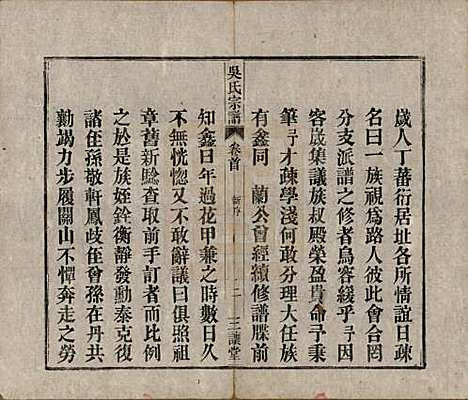 歲人丁蕃衍居址各所情誼日疎
名曰一族視爲路人彼此會罔
分支派譜之修者烏容緩乎予因
客歲集議族叔殿榮盈貴命予秉
筆予才疎學淺何敢分理大任族
有鑫同 蘭公曾經續修譜牒前
吳氏宗譜 卷首 新序 二 三讓堂
知鑫日年過花甲兼之時數日久
不無恍惚又不敢辭議曰俱照祖
章舊新騐查取前手訂者百比例
之於是族姪銓衡靜發動泰克復
諸侄孫敬軒鳳歧侄曾孫在丹共
勷竭力步履關山不憚奔走之勞